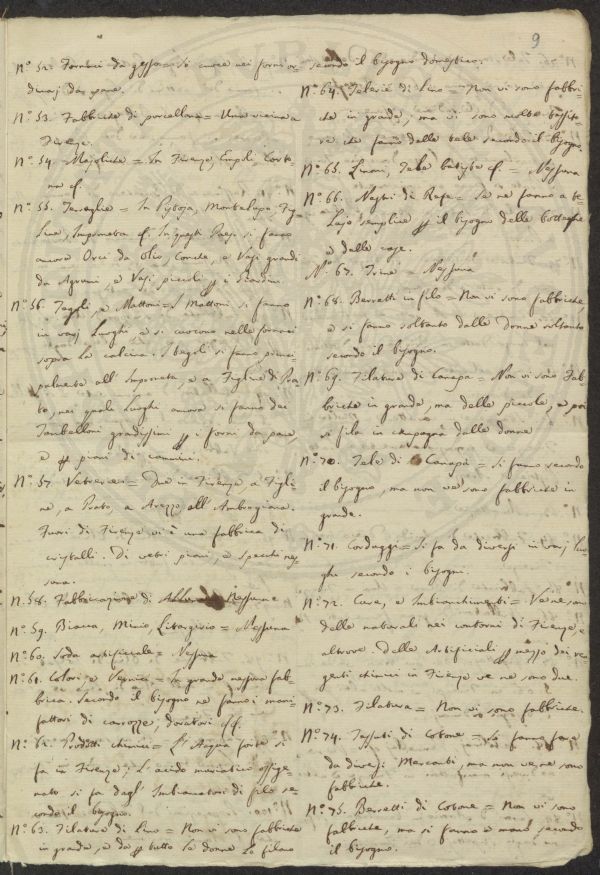 9
N.° 52. Fornaci da gesso = Si cuoce nei forni or
dinarj da pane.
N.° 53. Fabbriche di porcellane = Una vicina a
Firenze.
N.° 54. Majoliche = In Firenze, Empoli, Corto
na &.
N.° 55. Terraglie = In Pistoja, Montelupo, Fig
line, Impruneta &. In questi Paesi si fanno
ancora Orci da olio, Conche, e Vasi grandi
da Agrumi, e Vasi piccoli per i Giardini.
N.° 56. Tegoli, e Mattoni = I Mattoni si fanno
in varj Luoghi e si cuocono nelle fornaci
sopra la calcina. I tegoli si fanno princi
palmente all'Impruneta, e a Figline di Pra
to, nei quali Luoghi ancora si fanno dei
Tambelloni grandissimi per i forni da pane,
e per piani di cammini.
N.° 57. Vetrerie = Due in Firenze, a Figli
ne, a Prato, a Arezzo all'Ambrogiana.
Fuori di Firenze vi è una fabbrica di
cristalli. Di vetri piani, e specchi nes
suna.
N. 58. Fabbricazione di Nessuna
N.° 59. Biacca, Minio, Litargirio = Nessuna
N.° 60. Soda artificiale = Nessuna
N.° 61. Colori, e Vernici = In grande nessuna fab
brica. Secondo il bisogno ne fanno i mani
fattori di carrozze, doratori &.
N.° 62. Prodotti chimici = L'Acqua forte si
fa in Firenze; L'acido muriatico ossige
nato si fa dagl'Imbiancatori di filo se
condo il bisogno.
N.° 63. Filatura di Lino = Non vi sono fabbriche
in grande, e da per tutto le donne lo filano
secondo il bisogno domestico.
N.° 64. Telerie di Lino = Non vi sono fabbri
che in grande, ma vi sono molte tessito
re che fanno delle tele secondo il bisogno.
N.° 65. Linoni, Tele batiste &. = Nessuna
N.° 66. Nastri di Refe = Se ne fanno a te
lajo semplice per il bisogno delle botteghe
e delle case.
N.° 67. Trine = Nessuna
N.° 68. Berretti in filo = Non vi sono fabbriche,
e si fanno soltanto dalle Donne soltanto
secondo il bisogno.
N.° 69. Filatura di Canapa = Non vi sono Fab
briche in grande, ma delle piccole, e poi
si fila in campagna dalle donne
N.° 70. Tele di Canapa = si fanno secondo
il bisogno, ma non ve sono fabbriche in
grande.
N.° 71. Cordaggi = Si fa da diversi in varj luo
ghi secondo i bisogni.
N.° 72. Cure, e Imbianchimenti = Ve ne sono
delle naturali nei contorni di Firenze, e
altrove. Delle Artificiali per mezzo dei re
genti chimici in Firenze ve ne sono due.
N.° 73. Filatura = Non vi sono fabbriche.
N.° 74. Tessuti di Cotone = Si fanno fare
da diversi Mercanti, ma non ve ne sono
fabbriche.
N.° 75. Berretti di Cotone = Non vi sono
fabbriche, ma si fanno a mano secondo
il bisogno.